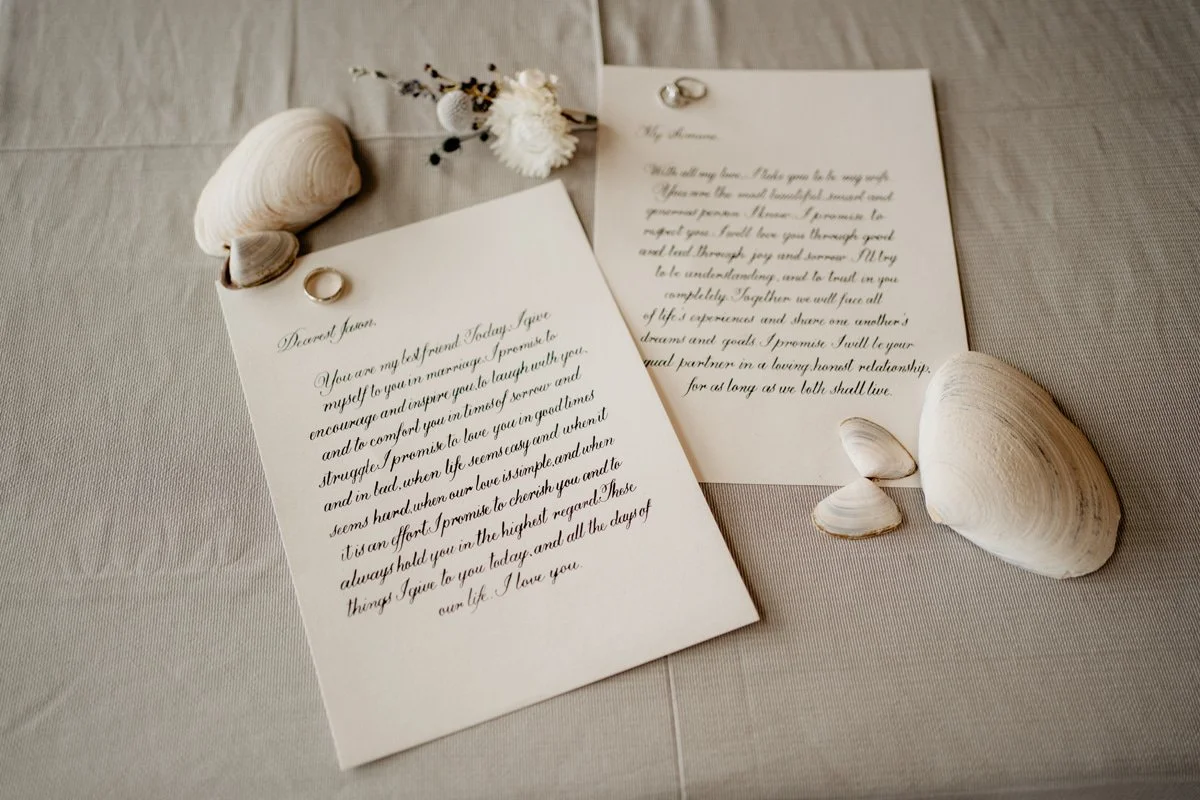 Dearest Jason,
You are my best friend. Today, I give
myself to you in marriage. I promise to
encourage and inspire you, to laugh with you,
and to comfort you in times of sorrow and
struggle. I promise to love you in good times
and in bad, when life seems easy and when it
seems hard, when our love is simple, and when
it is an effort. I promise to cherish you and to
always hold you in the highest regard. These
things I give to you today, and all the days of
our life. I love you.
My
With all my love, I take you to be my wife.
You are the most beautiful, smart and
generous person I know. I promise to
respect you. I will love you through good
and bad, through joy and sorrow. I'll try
to be understanding, and to trust in you
completely. Together we will face all
of life's experiences and share one another's
dreams and goals. I promise I will be your
equal partner in a loving, honest relationship,
for as long as we both shall live.